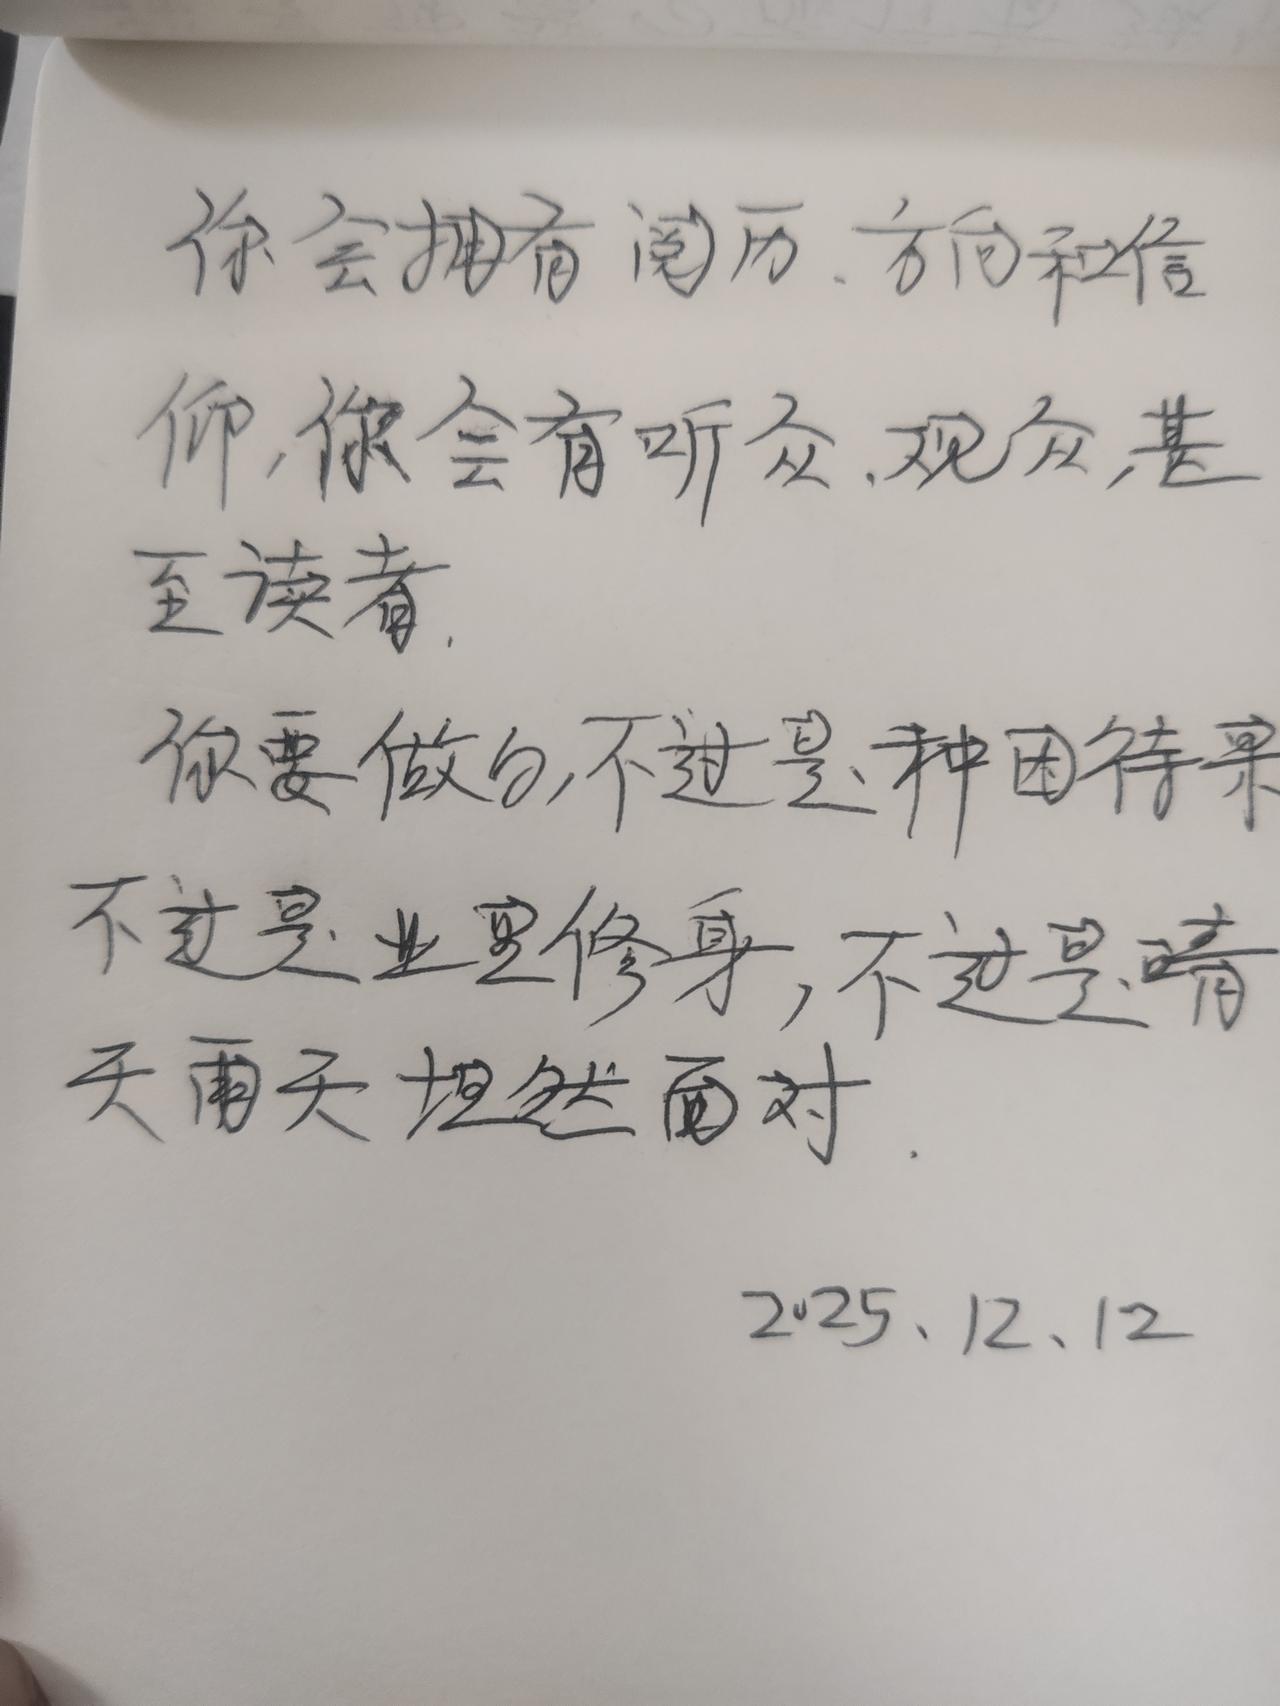 你会拥有阅历、方向和信
仰,你会有听众、观众,甚
至读者.
你要做的,不过是种因待果
不过是业里修身,不过是晴
天雨天坦然面对.
2025、12、12